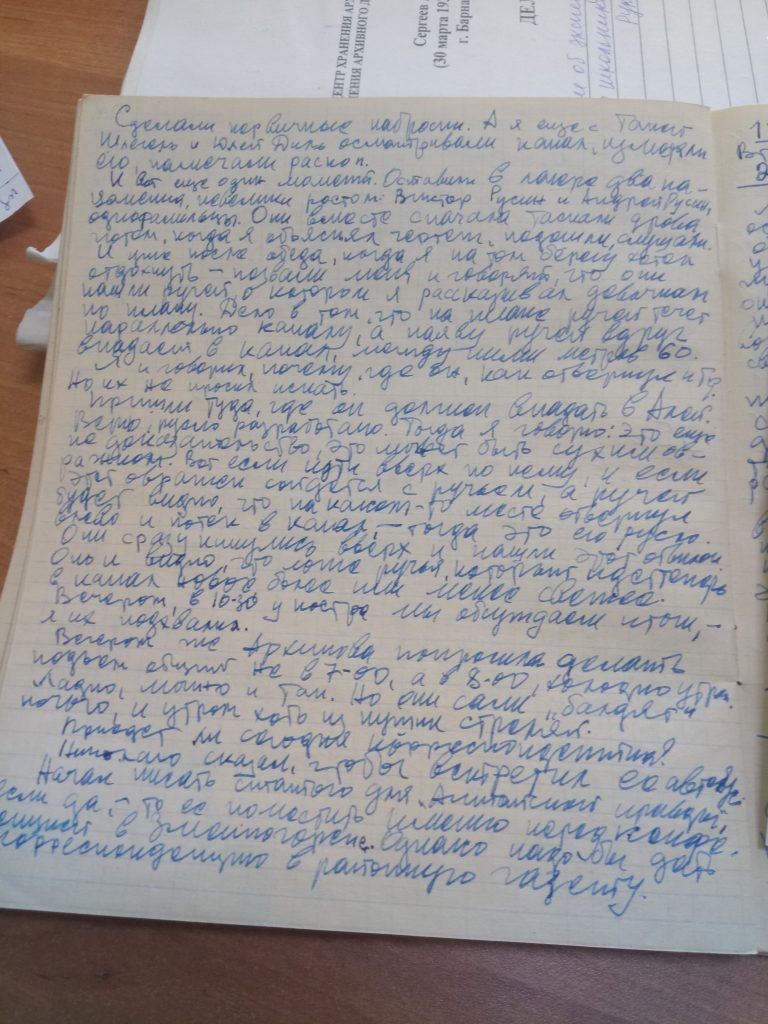 ЕНТР ХРАНЕНИЯ АР
ЕНИЯ АРХИВНОГО Д
Сергеев
(30 марта 19
г. Барна
ДЕЛ
об
школьник
Сделали первичные наброски. А я еще с Таней
и Юлей Диль осматривали канал, измеряли
его, намечали раскоп.
И вот еще один момент. Оставили в лагере два па-
цаненка, невелики ростом: Виктор Русин и Андрей Русин,
однофамильцы. Они вместе сначала таскали дрова,
потом, когда я объяснял чертеж, подошли, слушали.
И уже после обеда, когда я на том берегу хотел
отдохнуть – позвали меня и говорят, что они
нашли ручей, о котором я рассказывал девчонкам
по плану. Дело в том, что на плане ручей течет
параллельно каналу, а наяву ручей вдруг
впадает в канал, между ними метров 60.
Я и говорил, почему, где он, как отвернул и т.д.
Но их не просил искать.
Пришли туда, где он должен впадать в Алей.
Верно, русло разработано. Тогда я говорю: это еще
не доказательство, это может быть сухим ов-
рагом. Вот если идти вверх по нему, и если
этот овражек сойдется с ручьем, – а ручей
будет видно, что на каком-то месте отвернул
влево и потек в канал, – тогда это его русло.
Они сразу кинулись вверх и нашли этот
что ложе ручья, который идет теперь
в канал новое более или менее свежее.
Вечером, в 10-30 у костра мы обсуждаем итоги, –
я их похвалил.
Вечером же Архипова попросила делать
подъем общий не в 7-00, а в 8-00, холодно утром.
Ладно, можно и так. Но они сами „бандят"
ночью, и утром хоть из пушки стреляй.
Приедет ли сегодня корреспондентка?
Николаю сказал, чтобы встретил ее автобус
Начал писать „Алтайской правде",
если да, – то ее поместить именно перед конфе-
ренцией в Змеиногорске. Однако надо бы дать
корреспонденцию в районную газету.